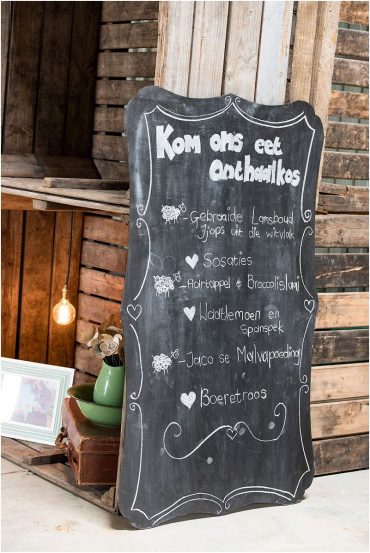 Kom ons eet
onthaalkos
- Gebraaide Lamsboud
Tjops uit die witvlak
Sosaties
- Aartappel & Broccolislaai
Waatlemoen en
Spanspek
- Jaco se Malvapoeding
Boeretroos